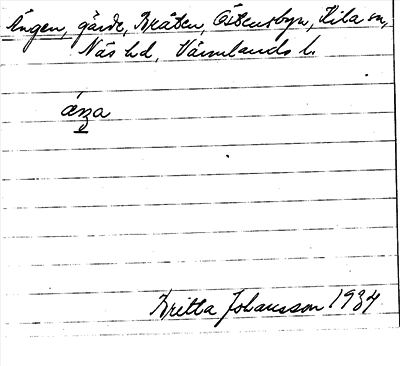 Ängen, gärde, Bråten, Östensbyn, Kila sn,
Näs hd, Värmlands l.
Britta Johansson 1934